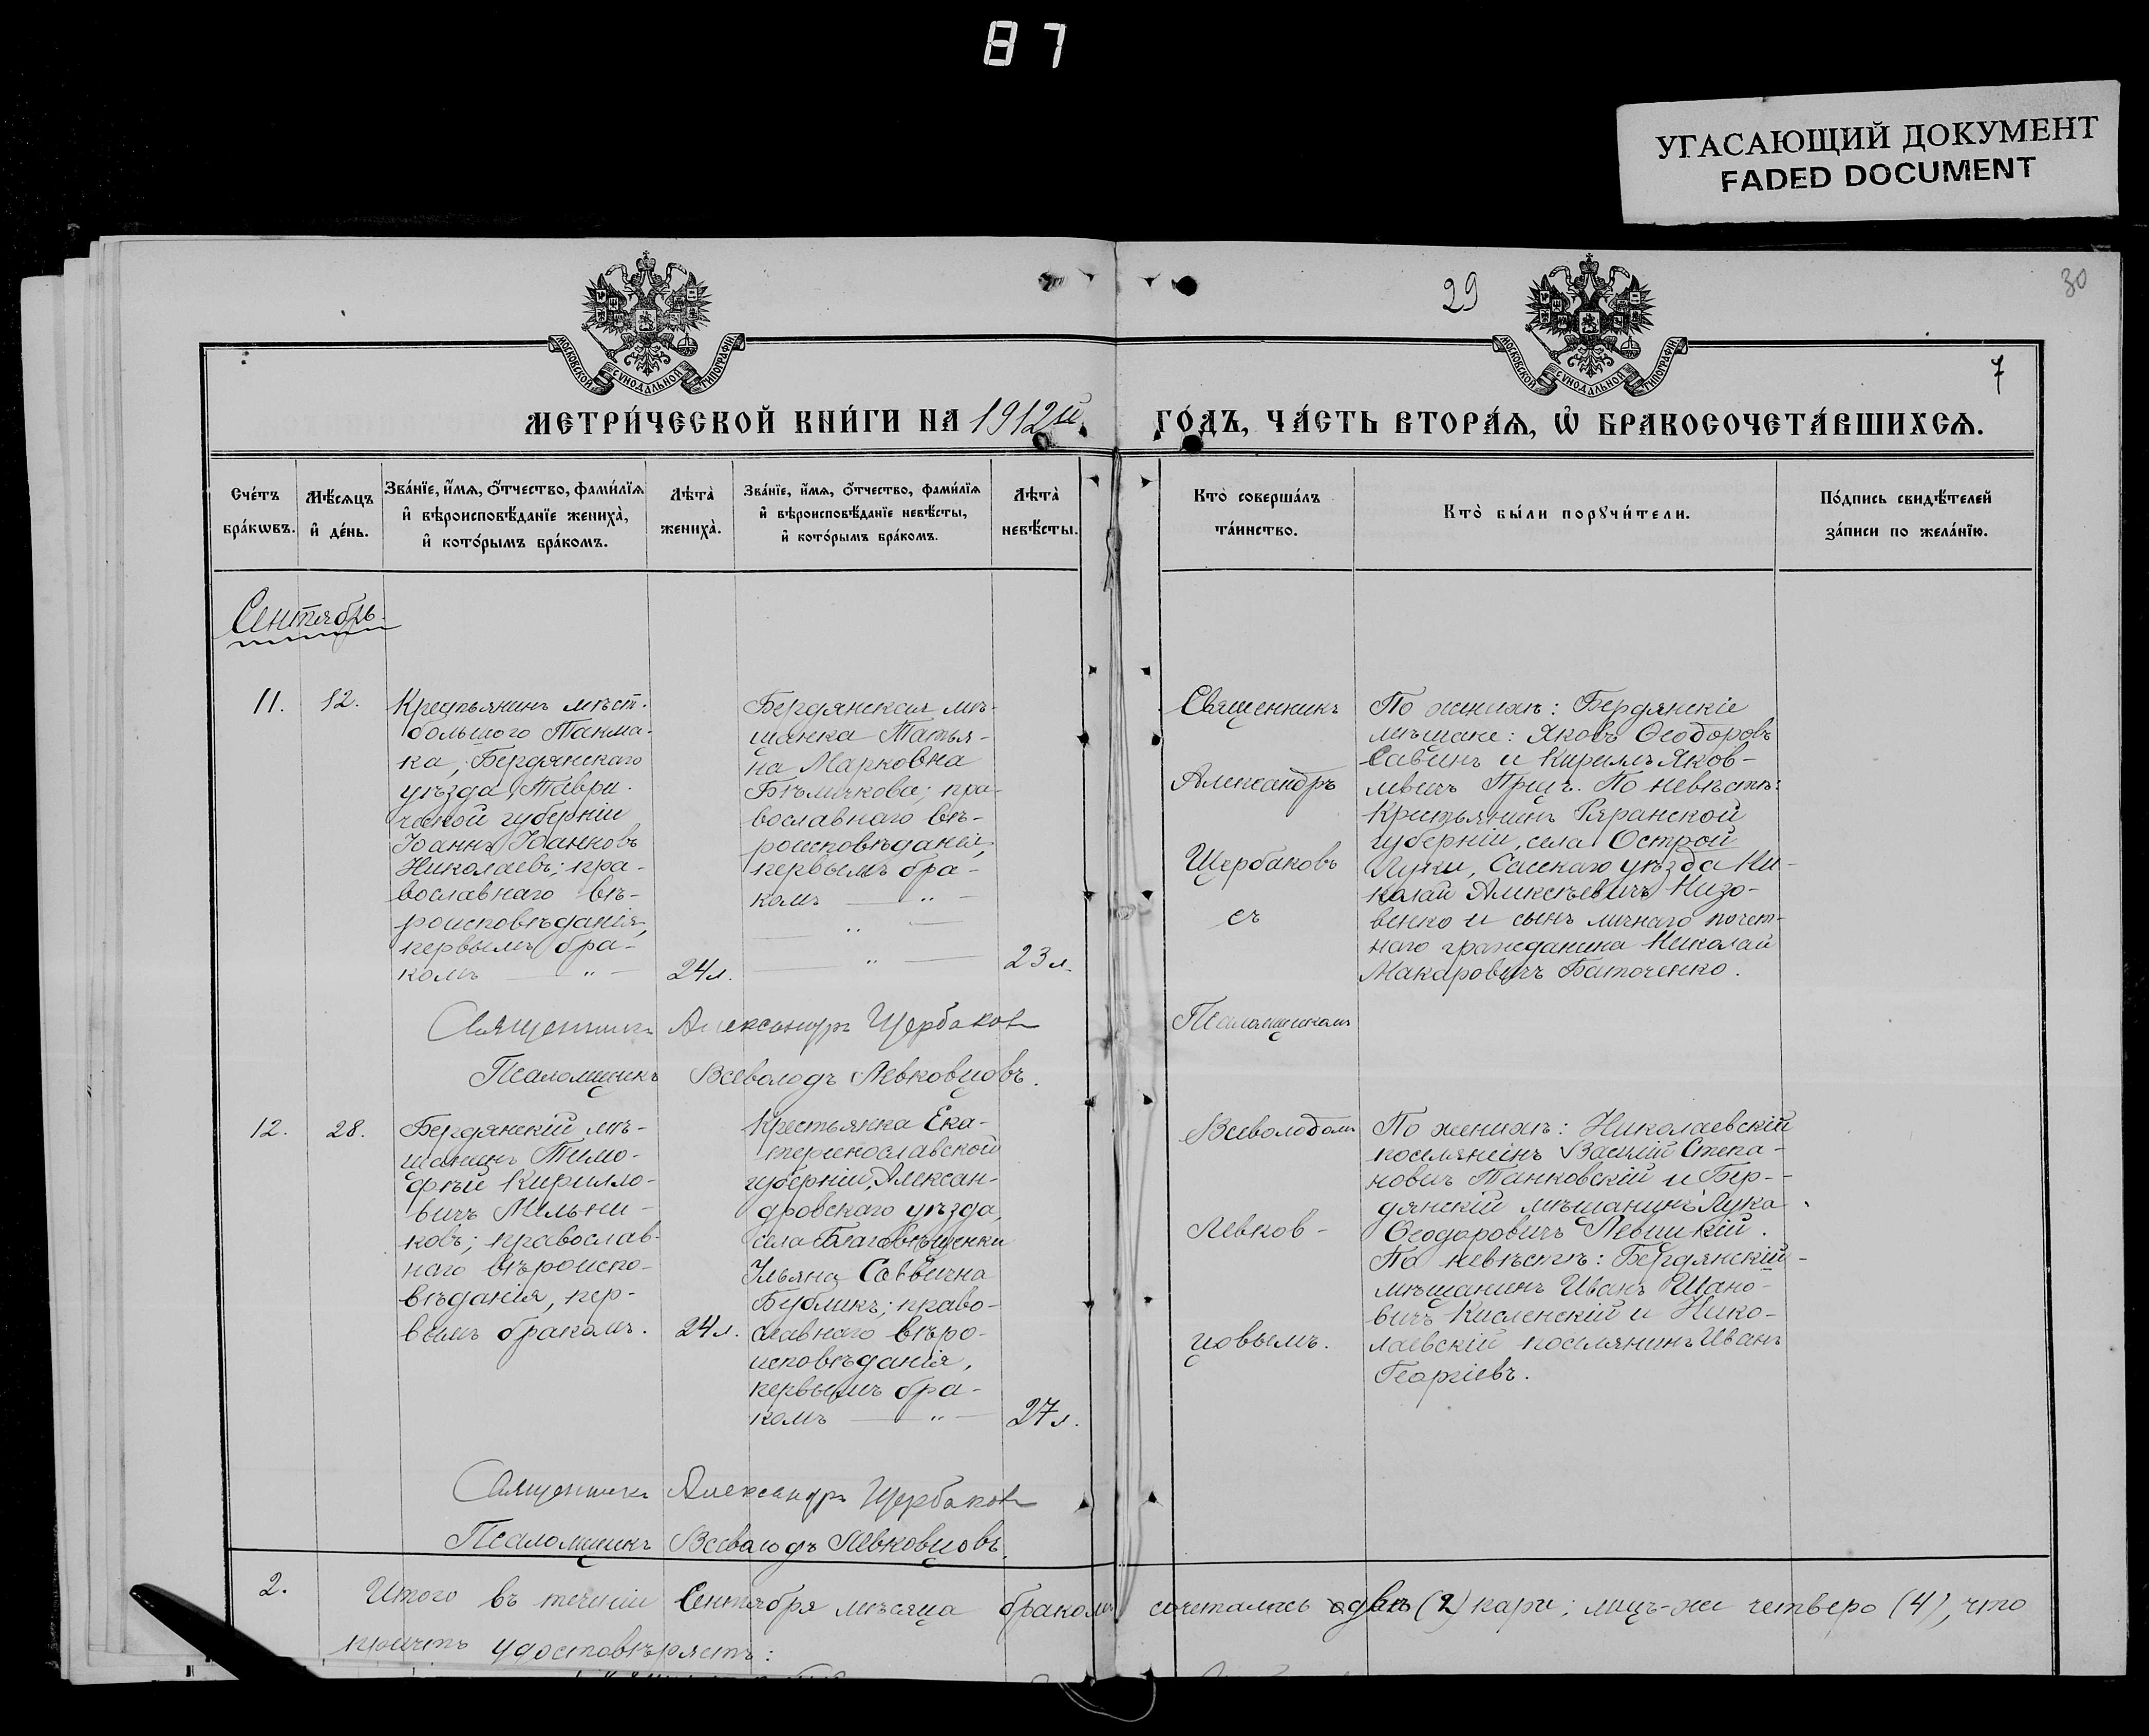 87
УГАСАЮЩИЙ ДОКУМЕНТ
FADED DOCUMENT
29
30
7
МОСКОВСКОЙ СѴНОДАЛЬНОЙ ТИПОГРАФІИ
МОСКОВСКОЙ СѴНОДАЛЬНОЙ ТИПОГРАФІИ
МЕТРИ́ЧЕСКОЙ КНИ́ГИ НА 1912й
ГО́ДЪ, ЧА́СТЬ ВТОРА́Ѧ, Ѽ БРАКОСОЧЕТА́ВШИХСѦ.
Сче́тъ
бра́кѡвъ.
Мѣ́сѧцъ
и҆ де́нь.
Зва́нїе, и҆́мѧ, ѻ҆́тчество, фами́лїѧ
и҆ вѣроисповѣ́данїе жениха̀,
и҆ кото́рымъ бра́комъ.
Лѣта̀
жениха̀.
Зва́нїе, и҆́мѧ, ѻ҆́тчество, фами́лїѧ
и҆ вѣроисповѣ́данїе невѣ́сты,
и҆ кото́рымъ бра́комъ.
Лѣта̀
невѣ́сты.
Кто̀ соверша́лъ
та́инство.
Кто̀ бы́ли порꙋчи́тели.
По́дпись свидѣ́телей
за́писи по жела́нїю.
Сентябрь.
11.
12.
Крестьянинъ мѣст.
большого Токма-
ка, Бердянскаго
уѣзда, Таври-
ческой губерніи
Іоаннъ Іоанновъ
Николаевъ; пра-
вославнаго вѣ-
роисповѣданія,
первымъ бра-
комъ — „ —
24 л.
Бердянская мѣ-
щанка Татья-
на Марковна
Бѣлычкова; пра-
вославнаго вѣ-
роисповѣданія,
первымъ бра-
комъ — „ —
— „ —
— „ —
23 л.
Священникъ
Александръ
Щербаковъ
съ
Псаломщикомъ
Всеволодомъ
Левков-
цовымъ.
По женихѣ: Бердянскіе
мѣщане: Яковъ Ѳеодоровъ
Савинъ и Кириллъ Яков-
левичъ По невѣстѣ:
Крестьянинъ Рязанской
губерніи, села Острой
Луки, Спасскаго уѣзда Ни-
колай Алексѣевичъ Низо-
венко и сынъ личнаго почет-
наго гражданина Николай
Макаровичъ Баточенко.
Священникъ Александръ Щербаковъ
Псаломщикъ Всеволодъ Левковцовъ.
12.
28.
Бердянскій мѣ-
щанинъ Тимо-
фѣй Кирилло-
вичъ Мельни-
ковъ; православ-
наго вѣроиспо-
вѣданія, пер-
вымъ бракомъ.
24 л.
Крестьянка Ека-
теринославской
губерніи, Алексан-
дровскаго уѣзда,
села Благовѣщенки
Ульяна Саввична
Бубликъ; право-
славнаго вѣро-
исповѣданія,
первымъ бра-
комъ — „ —
27 л.
По женихѣ: Николаевскій
поселянинъ Василій Степа-
новичъ Танковскій и Бер-
дянскій мѣщанинъ Лука
Ѳеодоровичъ Левицкій.
По невѣстѣ: Бердянскій
мѣщанинъ Иванъ
вичъ Кисленскій и Нико-
лаевскій поселянинъ Иванъ
Георгіевъ.
Священникъ Александръ Щербаковъ
Псаломщикъ Всеволодъ Левковцовъ.
2.
Итого въ теченіи Сентября мѣсяца бракомъ сочеталось двѣ (2) пары; лицъ-же четверо (4), что
причтъ удостовѣряетъ: